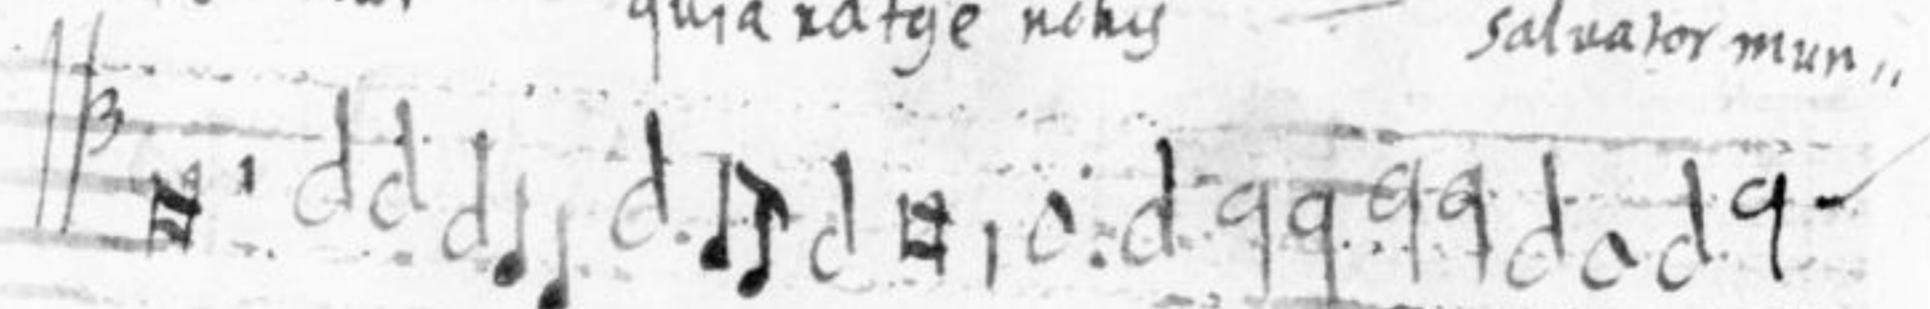 quia natge nobis salvator mun,,